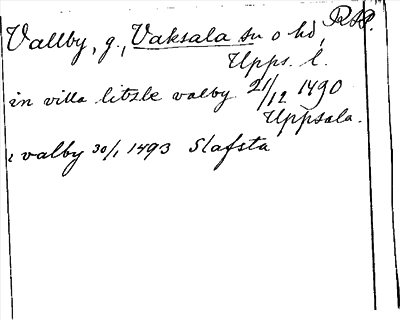 Vallby, g., Vaksala sn o hd, RAP.
Upps. l.
in villa litzle valby 21/12 1490
Uppsala.
i valby 30/1 1493 Slafsta